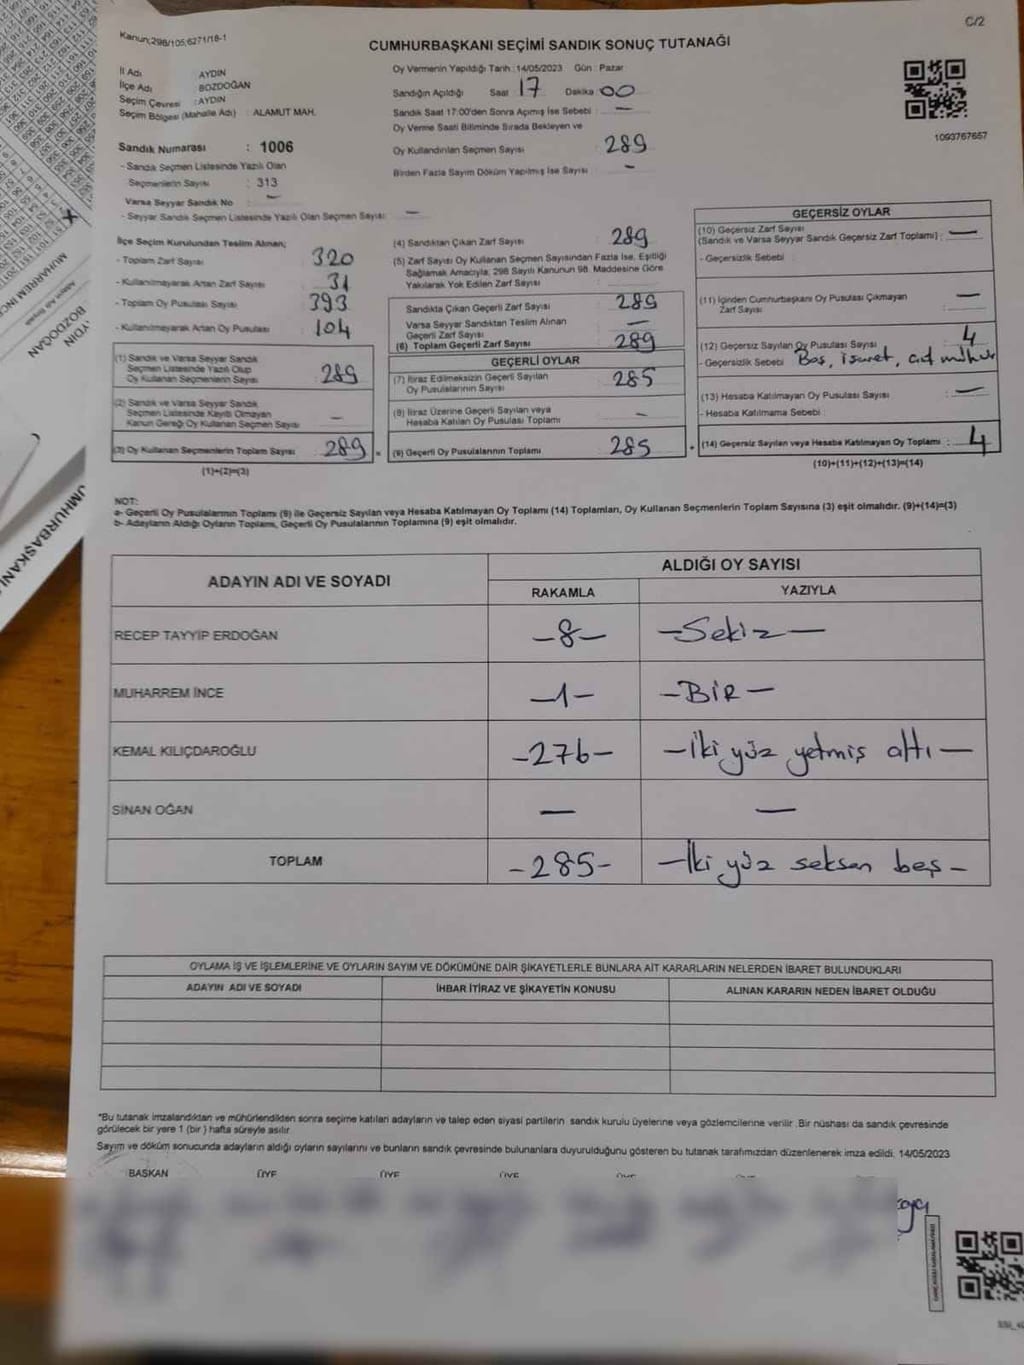 C/2
Kanun;298/105,6271/18-1
CUMHURBAŞKANI SEÇİMİ SANDIK SONUÇ TUTANAĞI
İl Adı AYDIN
İlçe Adı BOZDOĞAN
Seçim Çevresi : AYDIN
Seçim Bölgesi (Mahalle Adı) : ALAMUT MAH.
Oy Vermenin Yapıldığı Tarih : 14/05/2023 Gün : Pazar
Sandığın Açıldığı Saat 17 Dakika 00
Sandık Saat 17:00'den Sonra Açımış İse Sebebi : —
Oy Verme Saati Bitiminde Sırada Bekleyen ve
Oy Kullandırılan Seçmen Sayısı 289
Birden Fazla Sayım Döküm Yapılmış İse Sayısı : —
1093767657
Sandık Numarası : 1006
- Sandık Seçmen Listesinde Yazılı Olan
Seçmenlerin Sayısı : 313
Varsa Seyyar Sandık No : —
- Seyyar Sandık Seçmen Listesinde Yazılı Olan Seçmen Sayısı : —
İlçe Seçim Kurulundan Teslim Alınan;
- Toplam Zarf Sayısı 320
- Kullanılmayarak Artan Zarf Sayısı 31
- Toplam Oy Pusulası Sayısı 393
- Kullanılmayarak Artan Oy Pusulası 104
(1) Sandık ve Varsa Seyyar Sandık
Seçmen Listesinde Yazılı Olup
Oy Kullanan Seçmenlerin Sayısı 289
(2) Sandık ve Varsa Seyyar Sandık
Seçmen Listesinde Kayıtlı Olmayan
Kanun Gereği Oy Kullanan Seçmen Sayısı —
(3) Oy Kullanan Seçmenlerin Toplam Sayısı 289 =
(1)+(2)=(3)
(4) Sandıktan Çıkan Zarf Sayısı 289
(5) Zarf Sayısı Oy Kullanan Seçmen Sayısından Fazla İse, Eşitliği
Sağlamak Amacıyla; 298 Sayılı Kanunun 98. Maddesine Göre
Yakılarak Yok Edilen Zarf Sayısı :
Sandıkta Çıkan Geçerli Zarf Sayısı 289
Varsa Seyyar Sandıktan Teslim Alınan
Geçerli Zarf Sayısı —
(6) Toplam Geçerli Zarf Sayısı 289
GEÇERLİ OYLAR
(7) İtiraz Edilmeksizin Geçerli Sayılan
Oy Pusulalarının Sayısı 285
(8) İtiraz Üzerine Geçerli Sayılan veya
Hesaba Katılan Oy Pusulası Toplamı —
(9) Geçerli Oy Pusulalarının Toplamı 285 +
GEÇERSİZ OYLAR
(10) Geçersiz Zarf Sayısı
(Sandık ve Varsa Seyyar Sandık Geçersiz Zarf Toplamı) : —
- Geçersizlik Sebebi :
(11) İçinden Cumhurbaşkanı Oy Pusulası Çıkmayan
Zarf Sayısı —
(12) Geçersiz Sayılan Oy Pusulası Sayısı 4
- Geçersizlik Sebebi Boş, işaret,
(13) Hesaba Katılmayan Oy Pusulası Sayısı —
- Hesaba Katılmama Sebebi :
(14) Geçersiz Sayılan veya Hesaba Katılmayan Oy Toplamı : 4
(10)+(11)+(12)+(13)=(14)
NOT:
a- Geçerli Oy Pusulalarının Toplamı (9) ile Geçersiz Sayılan veya Hesaba Katılmayan Oy Toplamı (14) Toplamları, Oy Kullanan Seçmenlerin Toplam Sayısına (3) eşit olmalıdır. (9)+(14)=(3)
b- Adayların Aldığı Oyların Toplamı, Geçerli Oy Pusulalarının Toplamına (9) eşit olmalıdır.
ADAYIN ADI VE SOYADI ALDIĞI OY SAYISI
RAKAMLA YAZIYLA
RECEP TAYYİP ERDOĞAN -8- -Sekiz-
MUHARREM İNCE -1- -BİR-
KEMAL KILIÇDAROĞLU -276- -İki yüz yetmiş altı-
SİNAN OĞAN — —
TOPLAM -285- -İki yüz seksen beş-
OYLAMA İŞ VE İŞLEMLERİNE VE OYLARIN SAYIM VE DÖKÜMÜNE DAİR ŞİKAYETLERLE BUNLARA AİT KARARLARIN NELERDEN İBARET BULUNDUKLARI
ADAYIN ADI VE SOYADI İHBAR İTİRAZ VE ŞİKAYETİN KONUSU ALINAN KARARIN NEDEN İBARET OLDUĞU
*Bu tutanak imzalandıktan ve mühürlendikten sonra seçime katılan adayların ve talep eden siyasi partilerin sandık kurulu üyelerine veya gözlemcilerine verilir. Bir nüshası da sandık çevresinde
görülecek bir yere 1 (bir) hafta süreyle asılır.
Sayım ve döküm sonucunda adayların aldığı oyların sayılarını ve bunların sandık çevresinde bulunanlara duyurulduğunu gösteren bu tutanak tarafımızdan düzenlenerek imza edildi. 14/05/2023
BAŞKAN ÜYE ÜYE ÜYE
MUHARREM İNCE
BOZDOĞAN